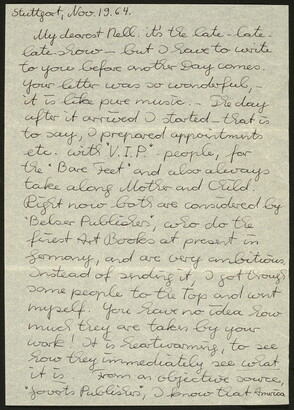 Stuttgart, Nov. 19. 64.
My dearest Nell. it's the late-late-
late-show — but I have to write
to you before another Day comes.
Your letter was so wonderful, —
it is like pure music. — The day
after it arrived I started — that is
to say, I prepared appointments
etc. with "V.I.P." people, for
the "Bare Feet" and also always
take along Mother and Child.
Right now both are considered by
"Belser Publisher", who do the
finest Art Books at present in
Germany, and are very ambitious.
Instead of sending it, I got through
some people to the Top and went
myself. You have no idea how
much they are taken by your
work! It is heartwarming, to see
how they immediately see what
it is from an objective source,
Publisher", I know that America